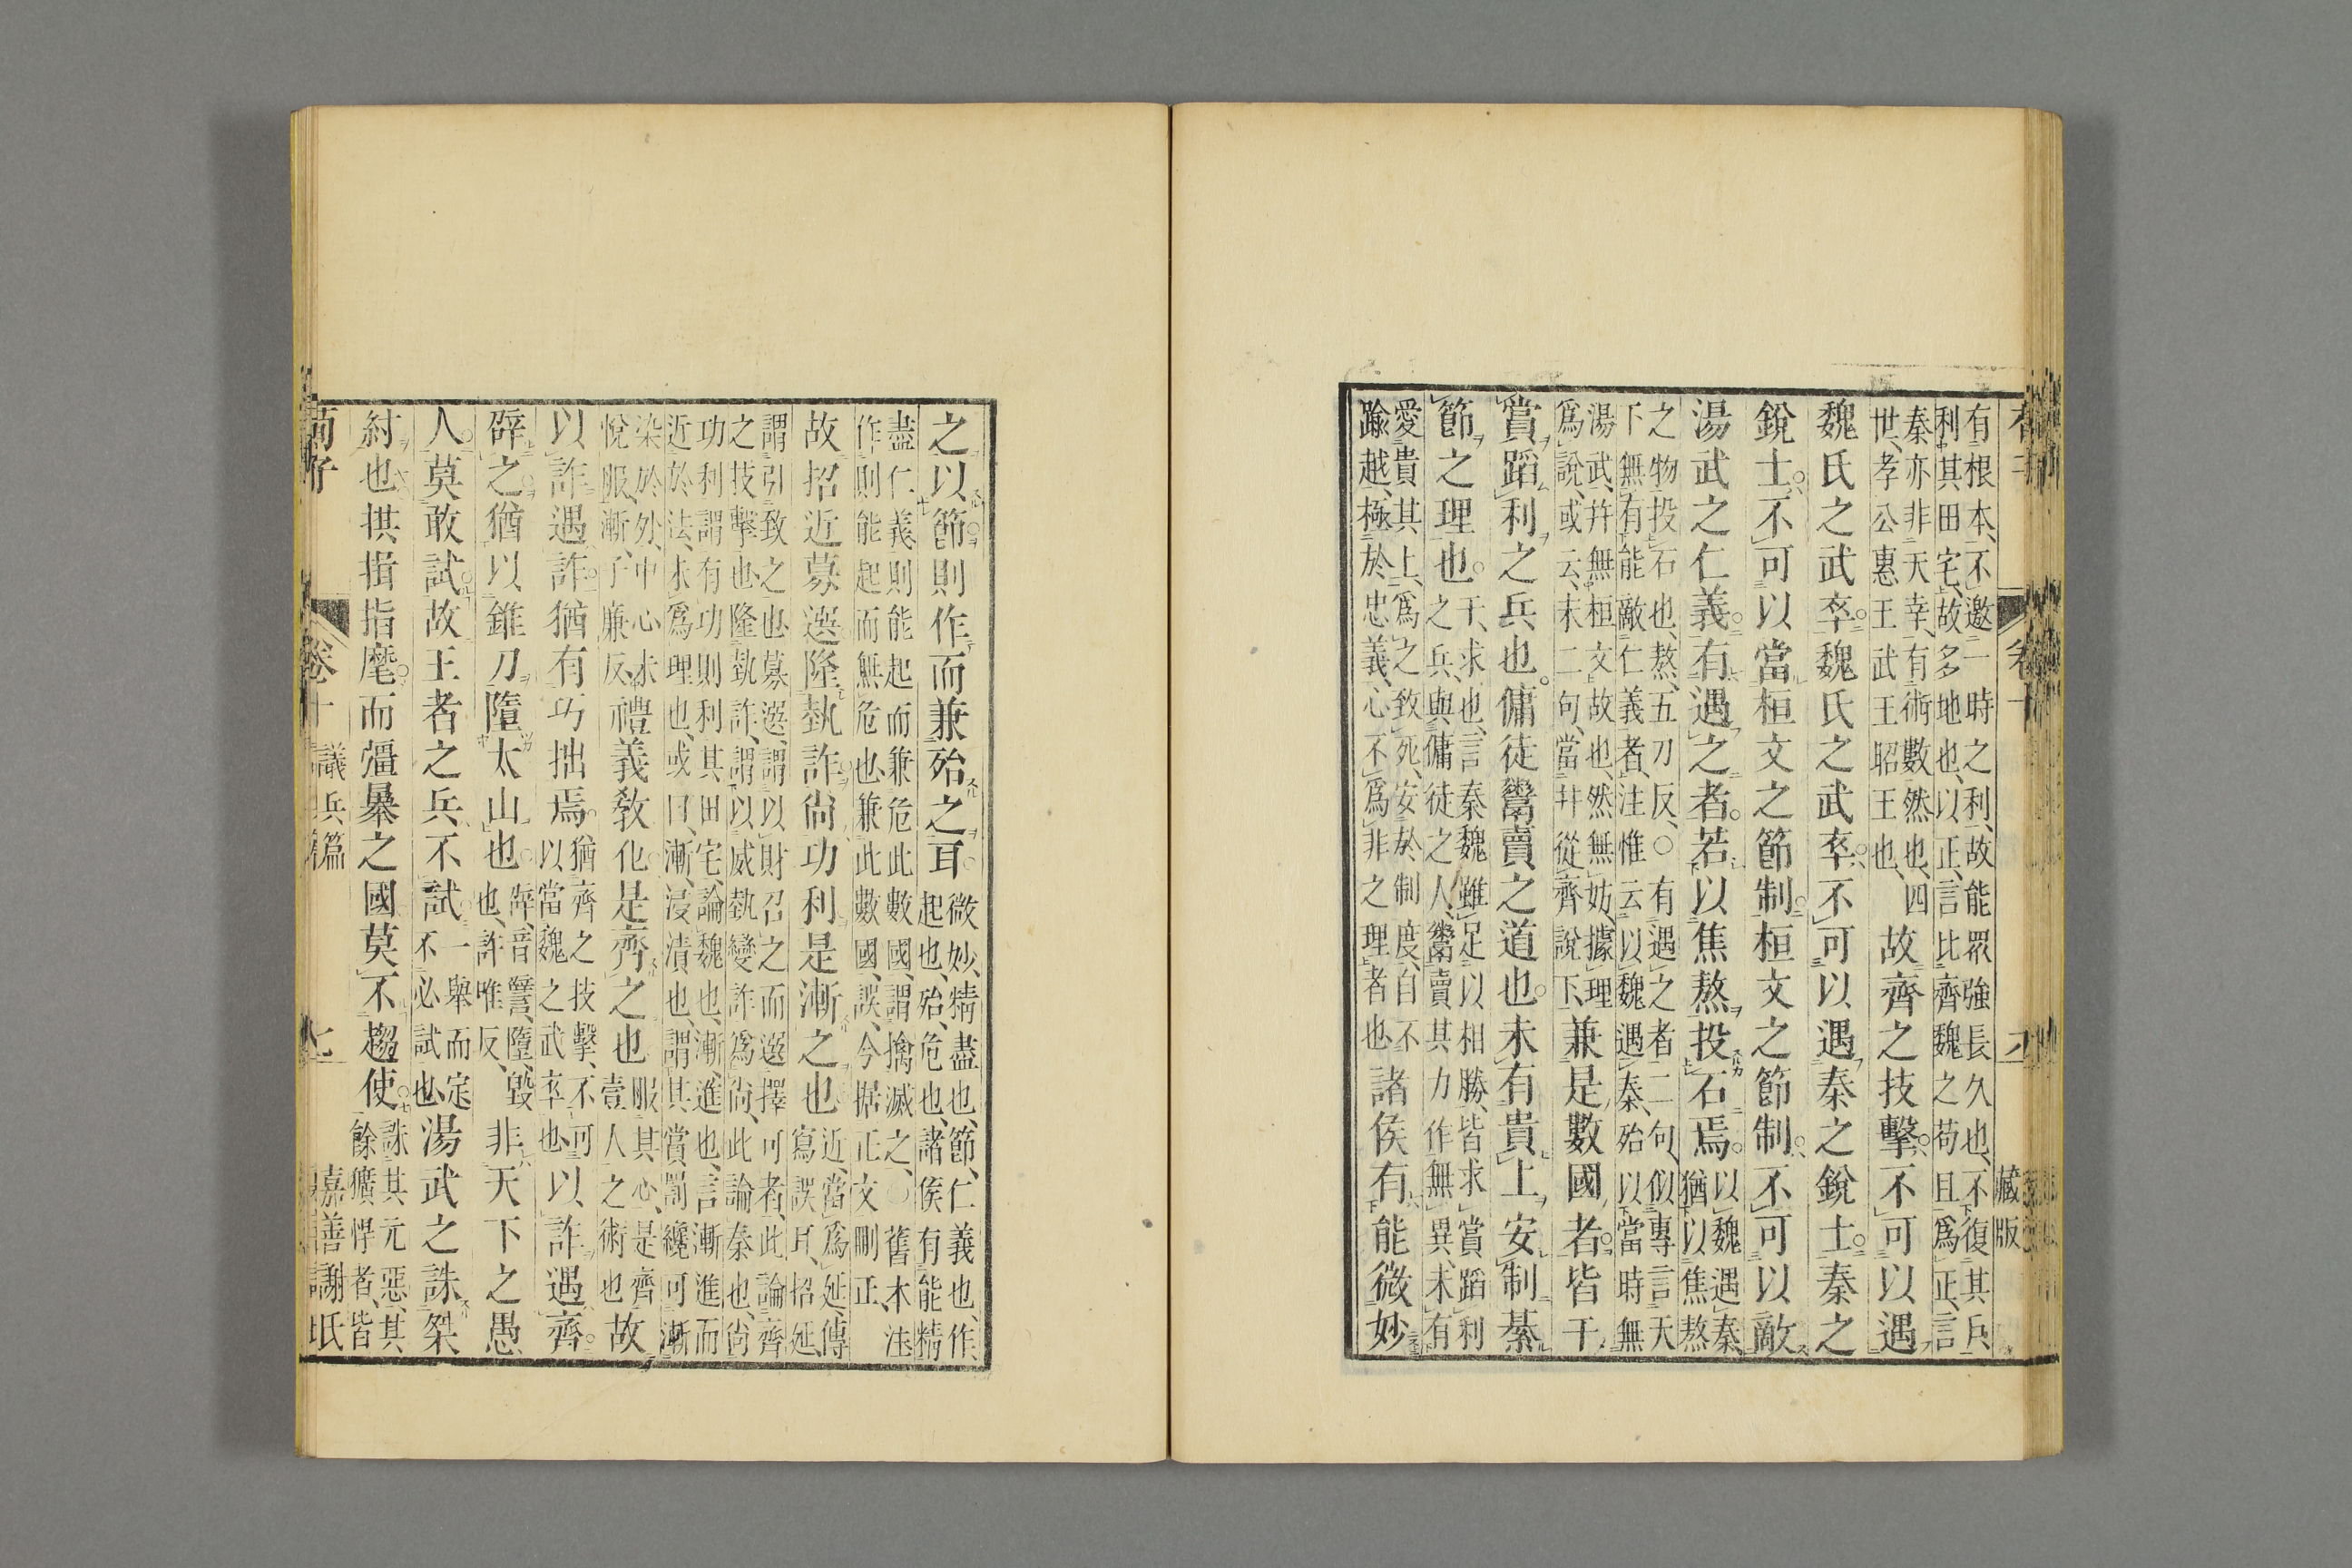 卷十　藏版
有根本、不邀一時之利、故能眾強長久也、不復其戶
利其田宅、故多地也、以正、言比齊魏之苟且爲正、言
秦亦非天幸、有術數然也、四
世、孝公惠王武王昭王也、
故齊之技擊不可以遇
魏氏之武卒魏氏之武卒不可以遇秦之銳士秦之
銳士不可以當桓文之節制桓文之節制不可以敵
湯武之仁義有遇之者若以焦熬投石焉
以魏遇秦、
猶以焦熬
之物投石也、熬、五刀反、〇有遇之者二句、似專言天
下無有能敵仁義者、注惟云以魏遇秦、殆以當時無
湯武、幷無桓文故也、然無妨據理
爲說、或云、末二句、當幷從齊說下、
兼是數國者皆干
賞蹈利之兵也傭徒鬻賣之道也未有貴上安制綦
節之理也
干、求也、言秦魏雖足以相勝、皆求賞蹈利
之兵、與傭徒之人、鬻賣其力作無異、未有
愛貴其上、爲之致死、安於制度、自不
踰越、極於忠義、心不爲非之理者也
諸侯有能微妙
之以節則作而兼殆之耳
微妙、精盡也、節、仁義也、作、
起也、殆、危也、諸侯有能精
盡仁義則能起而兼危此數國、謂擒滅之、〇舊本注
作則能起而無危也、兼此數國、誤、今据正文刪正、
故招近募選隆埶詐尙功利是漸之也
近、當爲延、傳
寫誤耳、招延、
謂引致之也、募選、謂以財召之而選擇可者、此論齊
之技擊也、隆埶詐、謂以威埶變詐爲尙、此論秦也、尙
功利、謂有功則利其田宅、論魏也、漸、進也、言漸進而
近於法、未爲理也、或曰、漸、浸漬也、謂其賞罰纔可漸
染於外、中心未
悅服、漸、子廉反、
禮義敎化是齊之也
服其心、是齊
壹人之術也
故
以詐遇詐猶有巧拙焉
猶齊之技擊、不可
以當魏之武卒也
以詐遇齊
辟之猶以錐刀隳太山也
辟、音譬、隳、毁
也、許唯反、
非天下之愚
人莫敢試故王者之兵不試
一舉而定
不必試也
湯武之誅桀
紂也拱揖指麾而彊暴之國莫不趨使
誅其元惡、其
餘獷悍者、皆
荀子　卷十　議兵篇　七　嘉善謝氏